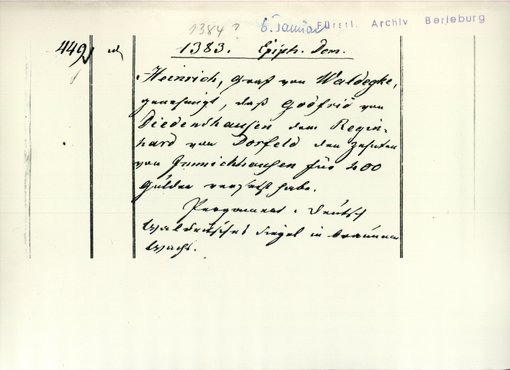 1384? 6. Januar Fürstl. Archiv Berleburg
449
1383. Epiph. Dom.
Heinrich, Graf von Waldegke,
genehmigt, daß Godfrid von
Diedenshausen dem Regin-
hard von Dorfeld den Zehnten
von Immichhausen für 400
Gulden versetzt habe.
Pergament. Deutsch
Waldeckisches Siegel in braunem
Wachs.